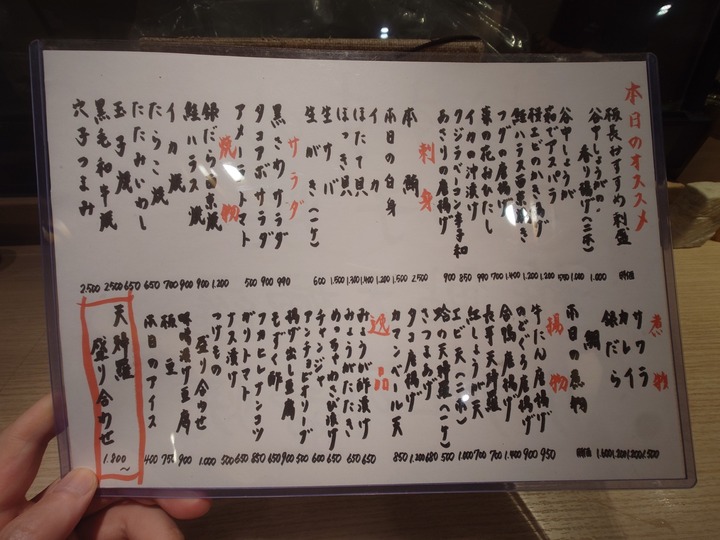 本日のオススメ
板長おすすめ刺盛 時価
谷中しょうがの
香り揚げ(二本) 1.000
谷中しょうが
茹でアスパラ
桜エビのかき揚げ 1.200
鮭ハラス西京焼き 1.200
フグの唐揚げ 1.400
菜の花おひたし 700
イカの沖漬け
クジラベーコン辛子和
あさりの唐揚げ 900
刺身
本鮪 2.500
本日の白身 1.500
イカ 1.200
ほたて貝 1.400
ほっき貝 1.300
生サバ 1.500
生がき(一ケ) 600
サラダ
黒きわサラダ 990
タコアボサラダ 900
アメーラトマト 500
焼物
銀だら西京焼 1.200
鮭ハラス焼 900
イカ焼 900
たらこ焼 700
たたみいわし 650
玉子焼 650
黒毛和牛焼 2500
穴子つまみ 2.500
煮物
サワラ 1.500
カレイ 1.200
銀だら 1.200
鯛 1.600
本日の魚物 時価
揚物
牛たん唐揚げ 950
のどぐろ唐揚げ 900
合鴨唐揚げ 1.400
長芋天時羅 700
紅しょうが天 700
エビ天(二本) 1.000
蛤の天時羅(一ケ) 500
さつまあげ 680
タコ唐揚げ 1.200
カマンベール天 850
逸品
みょうが酢漬け 650
みょうがたたき 650
めっちゃわさび漬け 650
チャンジャ 600
アンチョビオリーブ 500
揚げ出し豆腐 900
もずく酢 650
フカヒレアンコツ 850
ガリトマト 650
ナス漬け 500
つけもの
盛り合わせ 1.000
味噌漬け豆腐 900
枝豆 750
本日のアイス 400
天時羅
盛り合わせ
1.800
～